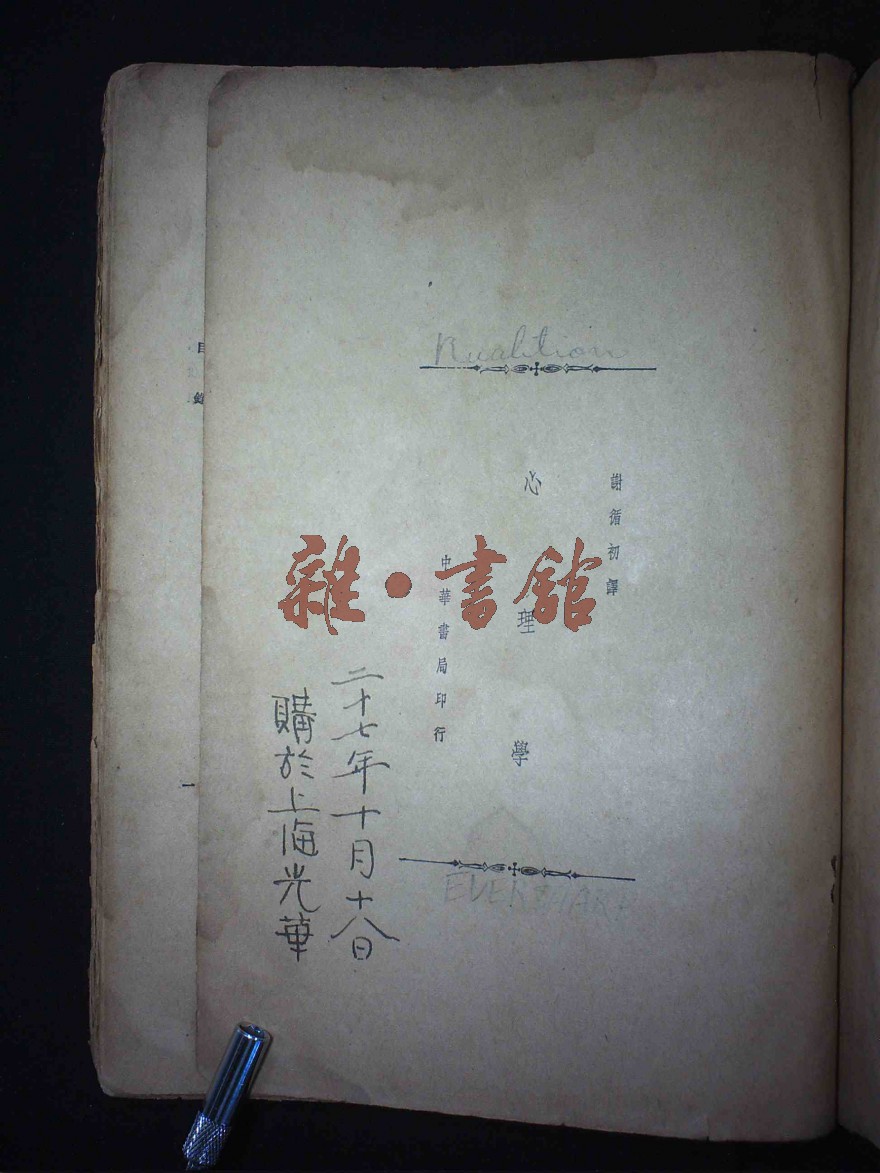 謝循初譯
心理學
中華書局印行
二十七年十月十八日
購於上海光華
雜·書館
EVERSHARP
目錄
一